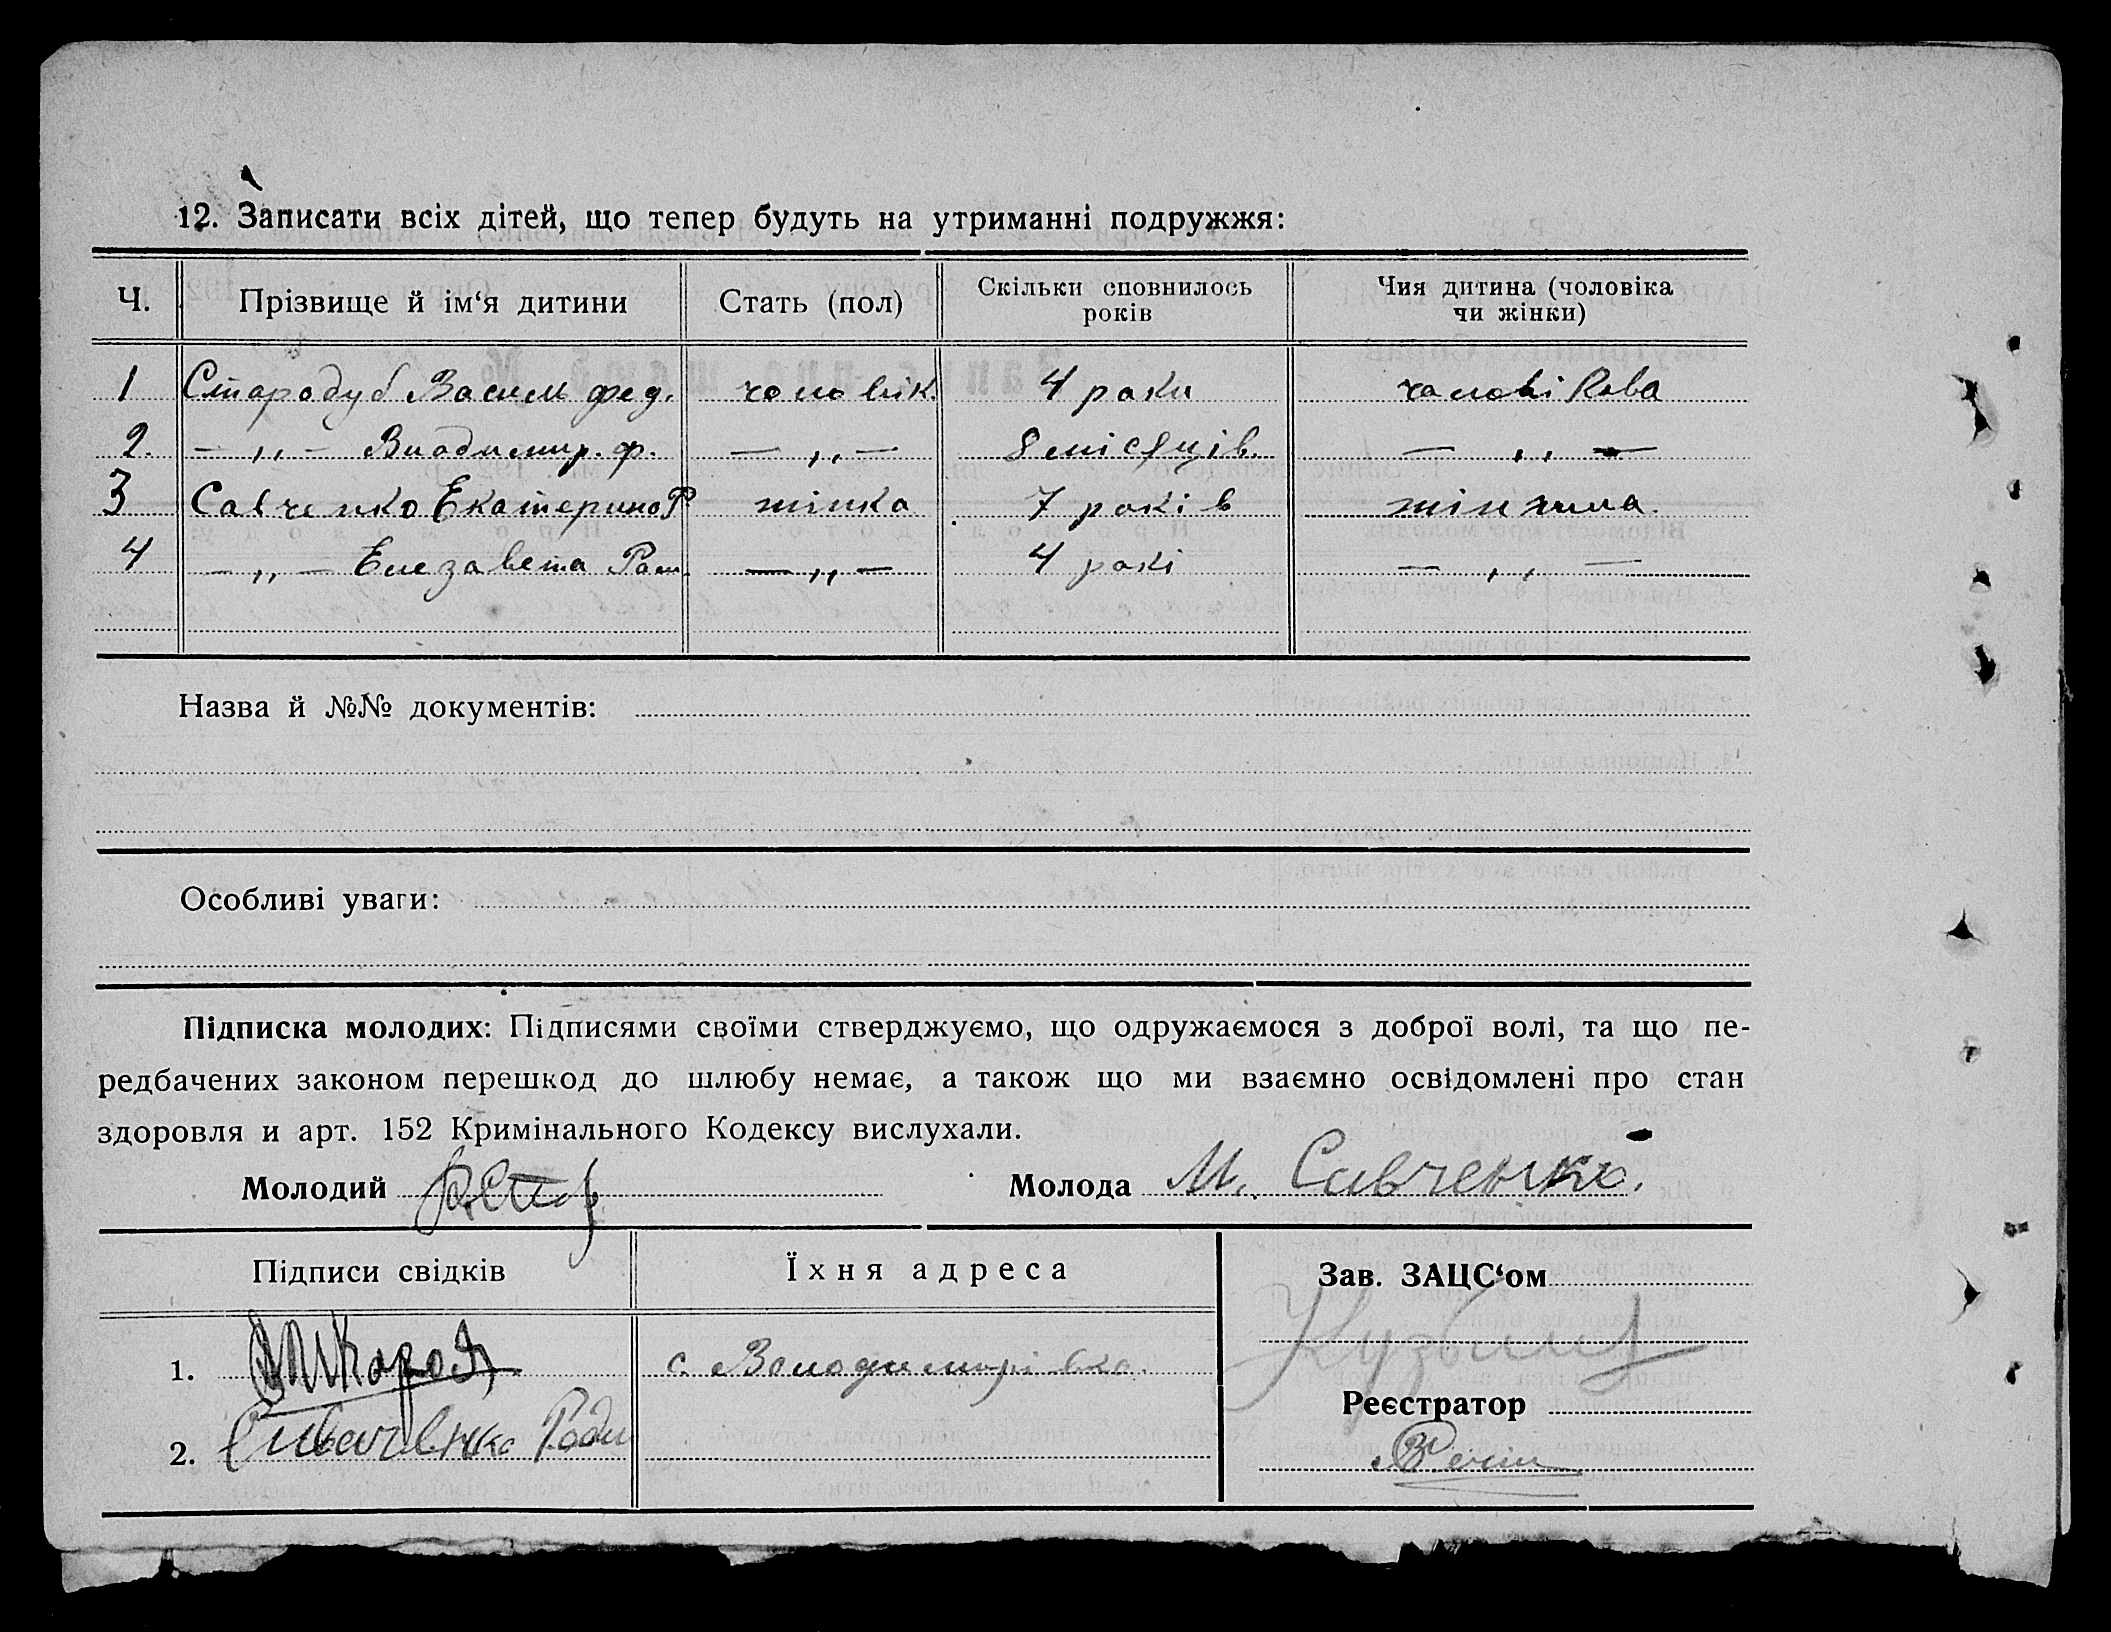 12. Записати всіх дітей, що тепер будуть на утриманні подружжя:
Ч. Прізвище й ім‘я дитини Стать (пол) Скільки сповнилось років Чия дитина (чоловіка чи жінки)
1 Стародуб Василь фед. чоловік. 4 роки чоловікова
2. — „ — Владимир. ф. — „ — 8 місяців. — „ —
3 Савченко Екатерина Р. жінка 7 років жінчина.
4 — „ — Елезавета Ром. — „ — 4 рокі — „ —
Назва й №№ документів:
Особливі уваги:
Підписка молодих: Підписями своїми стверджуємо, що одружаємося з доброї волі, та що пе-
редбачених законом перешкод до шлюбу немає, а також що ми взаємно освідомлені про стан
здоровля и арт. 152 Кримінального Кодексу вислухали.
Молодий Молода М. Савченко.
Підписи свідків Їхня адреса Зав. ЗАЦС‘ом
1. с. Володимирівка.
Реєстратор
2.